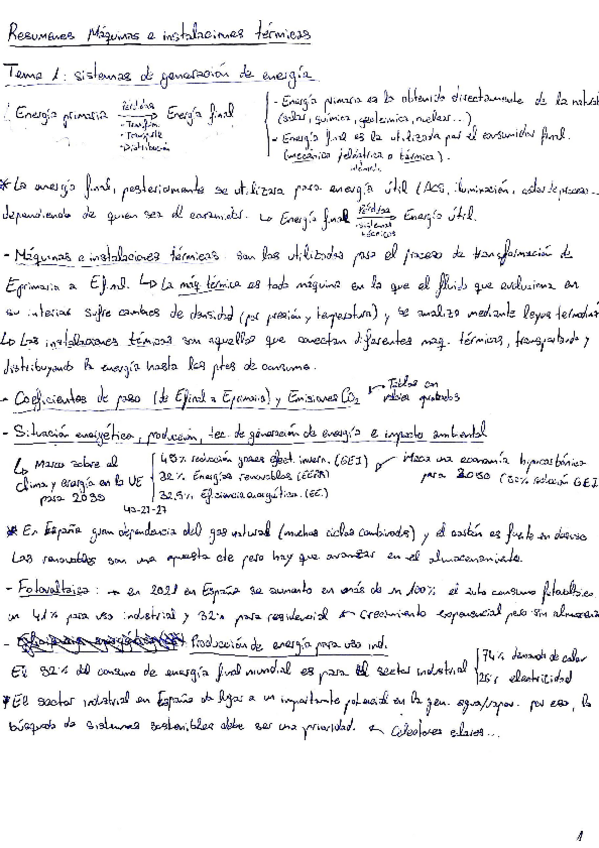 Resumenes Máquinas e instalaciones térmicas
Tema 1: sistemas de generación de energía
Energía primaria → Energía final
Pérdidas
- Transfor.
- Transporte
- Distribución
- Energía primaria es la obtenida directamente de la natural
(solar, química, geotérmica, nuclear...)
- Energía final es la utilizada por el consumidor final.
(mecánica, eléctrica o térmica).
* La energía final, posteriormente se utilizara para energía útil (ACS, iluminación, calor de proceso...
dependiendo de quien sea el consumidor. ↳ Energía final → Energía útil.
Pérdidas
- sistemas
térmicos
- Máquinas e instalaciones térmicas: son las utilizadas para el proceso de transformación de
Eprimaria a Efinal. ↳ La máq térmica es toda máquina en la que el fluido que evoluciona en
su interior sufre cambios de densidad (por presión y temperatura) y se analiza mediante leyes termodiná
↳ Las instalaciones térmicas son aquellas que conectan diferentes maq. térmicas, transportando y
distribuyendo la energía hasta los ptos de consumo.
- Coeficientes de paso (de Efinal a Eprimaria) y Emisiones CO2
Tablas con
- Situación energética, producción, tec. de generación de energía e impacto ambiental
↳ Marco sobre el
clima y energía en la UE
para 2030
43% reducción gases efect. invern. (GEI)
32% Energías renovables
32,5% Eficiencia energética. (EE.)
43-27-27
una economía hipocarbónica
para 2050
* En España gran dependencia del gas natural (muchas ciclos combinados) y el carbón es fuente en desuso
Las renovables son una apuesta pero hay que avanzar en el almacenamiento.
- Fotovoltaica: → en 2021 en España se aumento en más de un 100% el auto consumo fotovoltaico
un 41% para uso industrial y 32% para residencial Crecimiento exponencial pero sin
- Producción de energía para uso ind.
El 32% del consumo de energía final mundial es para el sector industrial
74% demanda de calor
26% electricidad
* El sector industrial en España da lugar a un importante potencial en la gen. agua/vapor. por eso, la
búsqueda de sistemas sostenibles debe ser una prioridad. Colectores solares...
1